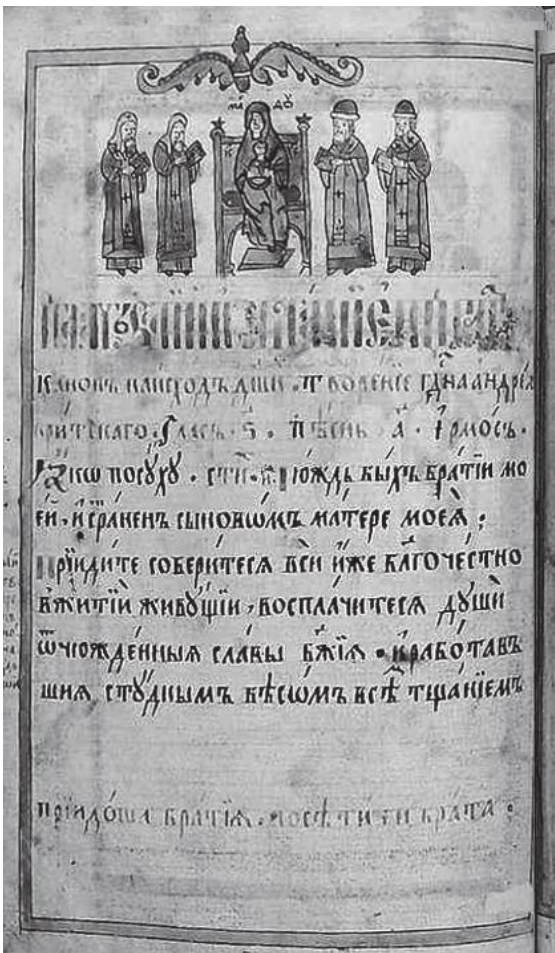 Канонъ на исходъ дꙋши. Творенїе гдⷭ҇на андрїа
критскаго. Гласъ. ѕ҃. Пѣснь. а҃. Їрмосъ.
Ꙗ҆́кѡ посꙋ́хꙋ. сти́. чю́ждь бы́хъ бра́тїи мо
е́й. и҆ стра́ненъ сыновѡ́мъ ма́тере моеѧ̀;
прїиди́те собери́тесѧ всѝ и҆́же бл҃гоче́стно
вжитїѝ живꙋ́щїи, воспла́читесѧ дꙋшѝ
ѿчюжде́нныѧ сла́вы бж҃їѧ. и҆ рабо́тавъ
шиѧ стꙋ́днымъ бѣсѡ́мъ всѣ́ тща́нїемъ
прїидо́ша бра́тїѧ. посѣти́ти бра́та.